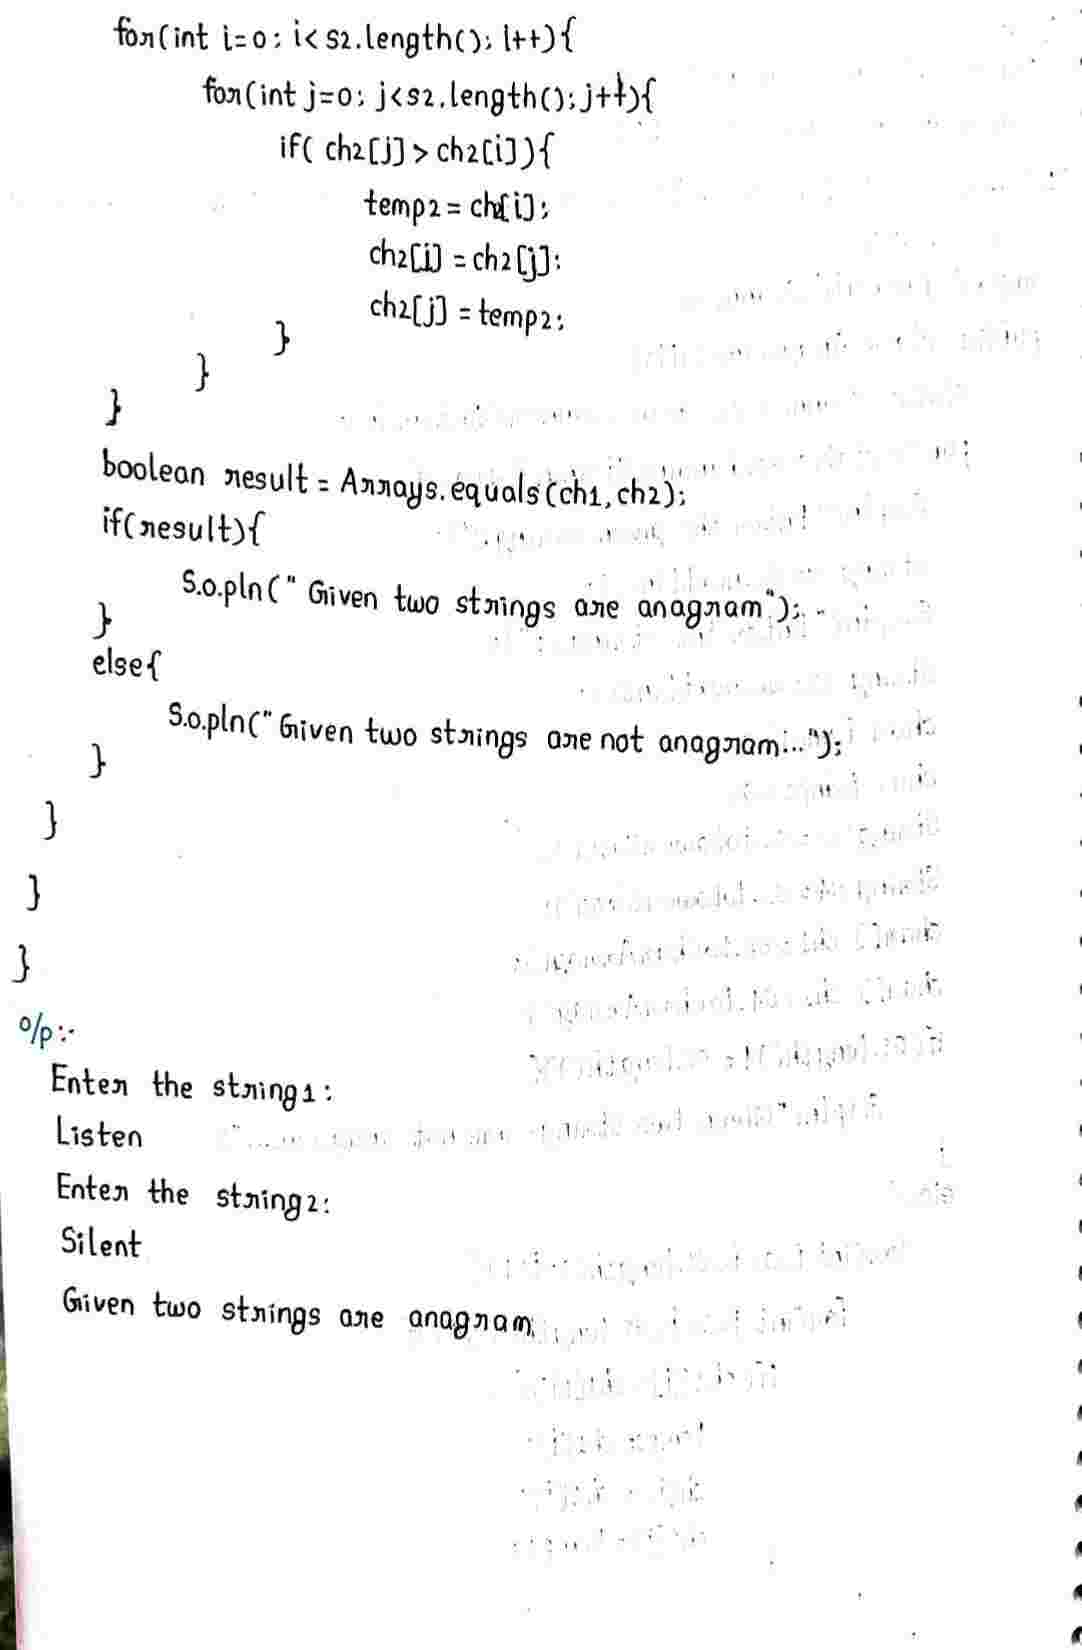 for(int i=0; i<s2.length(); i++){
for(int j=0; j<s2.length(); j++){
if( ch2[j] > ch2[i]){
temp2 = ch2[i];
ch2[i] = ch2[j];
ch2[j] = temp2;
}
}
}
boolean result = Arrays.equals(ch1, ch2);
if(result){
S.o.pln(" Given two strings are anagram");
}
else{
S.o.pln("Given two strings are not anagram...");
}
}
}
}
o/p:-
Enter the string1:
Listen
Enter the string2:
Silent
Given two strings are anagram